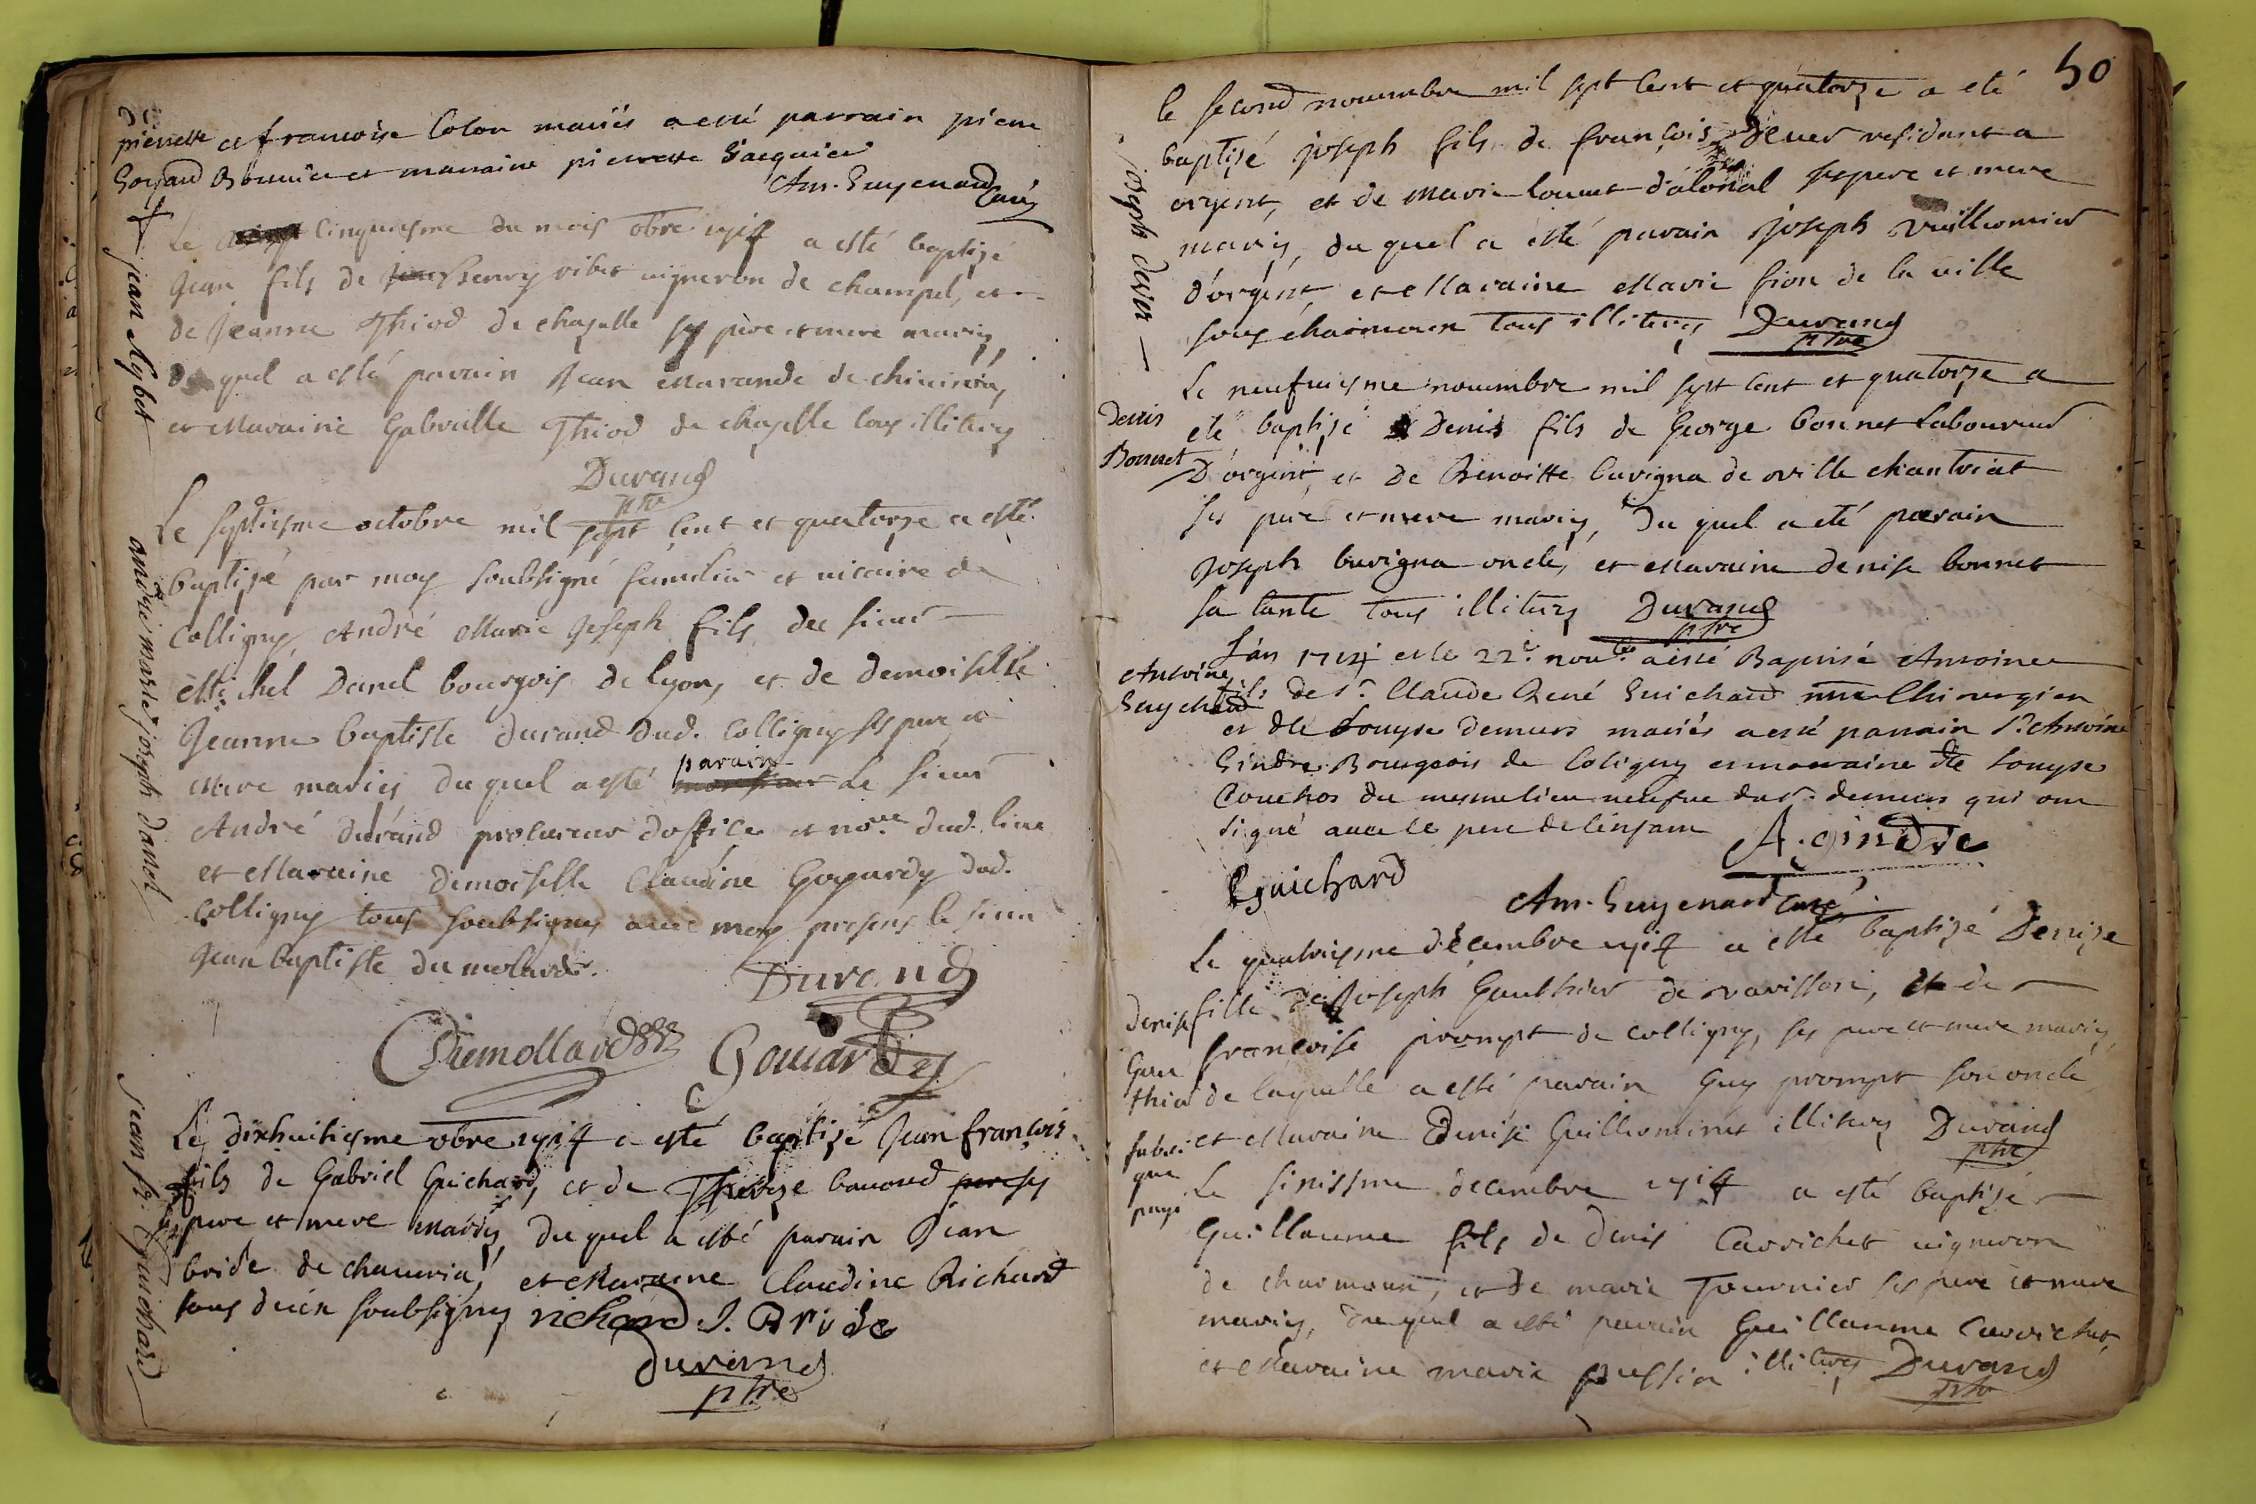 pierrette et francoise Colon mariés a esté parrain pierre
Goyard Bouuier et marraine pierrette Jacquier
Am. Guyenard Curé
jean Rybet
Le cinquiesme du mois 8bre 1714 a esté baptizé
Jean fils de Benry ribet vigneron de champel, et
de Jeanne Thiod de chazelle ses père et mere mariez,
Du quel a esté parain Jean Marande de
et Maraine Gabrielle Thiod de chazelle tous illiterez
Durand
ptre
andré marie joseph danel
Le septiesme octobre mil sept cent et quatorze a esté
baptizé par moy soubsigné familier et vicaire de
Colligny, André Marie Joseph fils du sieur
Michel Danel bourgois de lyon, et de demoiselle
Jeanne baptiste durand dud. Colligny ses pere et
mere mariez du quel a esté parain le sieur
André durand procureur doffice et nore. dud. lieu
et Maraine demoiselle Claudine Gouyardy dud.
Colligny tous soubsignez avec moy presens le sieur
Jean baptiste du molard.
Durand
Dumollard Gouiardy
C
jean fr. Guichard
Le dixhuitiesme 8bre 1714 a esté baptizé Jean francois
fils de Gabriel Guichard, et de Thereze bauoud ses
pere et mere Mariez, du quel a esté parain Jean
bride de chauuria, et Maraine Claudine Richard
tous deux soubsignez richard J. Bride
durand
ptre
50
joseph dever
le second nouembre mil sept cent et quatorze a eté
baptizé joseph fils de francois deuer residant a
orgent, et de Marie louuet dalonal ses pere et mere
mariez, du quel a esté parain joseph vuilliermier
d'orgent, et Maraine Marie sion de la ville
sous charmoux tous illiterez Durand
ptre
Denis
Bonnet
Le neufuiesme nouembre mil sept cent et quatorze a
eté baptizé Denis fils de George bonnet Laboureur
D'orgent, et de Benoitte buvigna de ville chantriat
ses pere et mere mariez, du quel a eté parain
Joseph buvigna oncle, et Maraine denise bonnet
sa tante tous illiterez Durand
ptre
Antoine
Guychard
L'an 1714 et le 22e. noubre a esté Baptisé Antoine
fils de sr. Claude René Guichard me Chirurgien
et dlle Louyse demurs mariés a esté parrain sr. Antoine
Gindre Bourgeois de Coligny et marraine dlle Louyse
Couchos du mesme lieu neufue du sr. demurs qui ont
signé auec le pere de l'enfant A. gindre
Guichard
Am. Guyenard Curé
Denise
Gau
thier
Le quatriesme décembre 1714 a esté baptizé Denize
fille de Joseph Gauthier de ravissori, et de
francoise prompt de colligny, ses pere et mere mariez,
de laquelle a esté parain Guy prompt son oncle
et Maraine Denise Guilliominet illiterez Durand
ptre
fabri
que
paye
Le sixissme decembre 1714 a esté baptizé
Guillaume fils de denis Carrichet vigneron
de charmoux, et de marie Tournier ses pere et mere
mariez, duquel a esté parain Guillaume Carrichet,
et Maraine marie pussin illiterez Durand
ptre